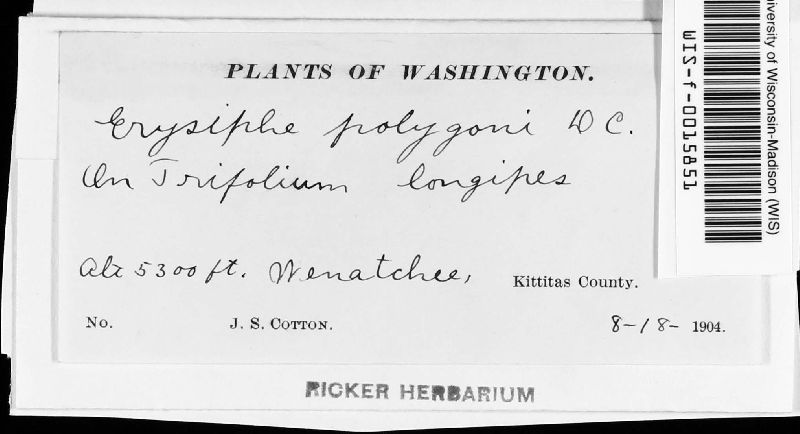 PLANTS OF WASHINGTON.
Erysiphe polygoni D C.
On Trifolium longipes
Alt 5300 ft. Wenatchee, Kittitas County.
No. J. S. COTTON. 8-18- 1904.
RICKER HERBARIUM
University of Wisconsin-Madison (WIS)
WIS-f-0015851